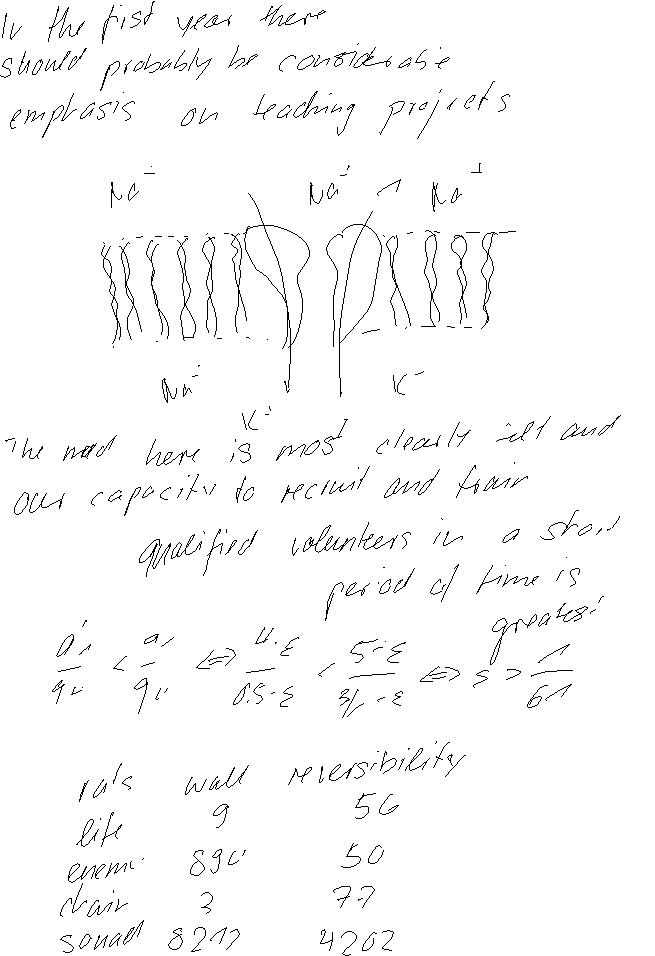 In the first year there
should probably be considerable
emphasis on teaching projects
Na⁺ Na⁺ Na⁺
Na⁺ K⁺ K⁺
The need here is most clearly felt and
our capacity to recruit and train
qualified volunteers in a short
period of time is
greatest
rats wall reversibility
life 9 56
50
chair 3 77
squad 4202